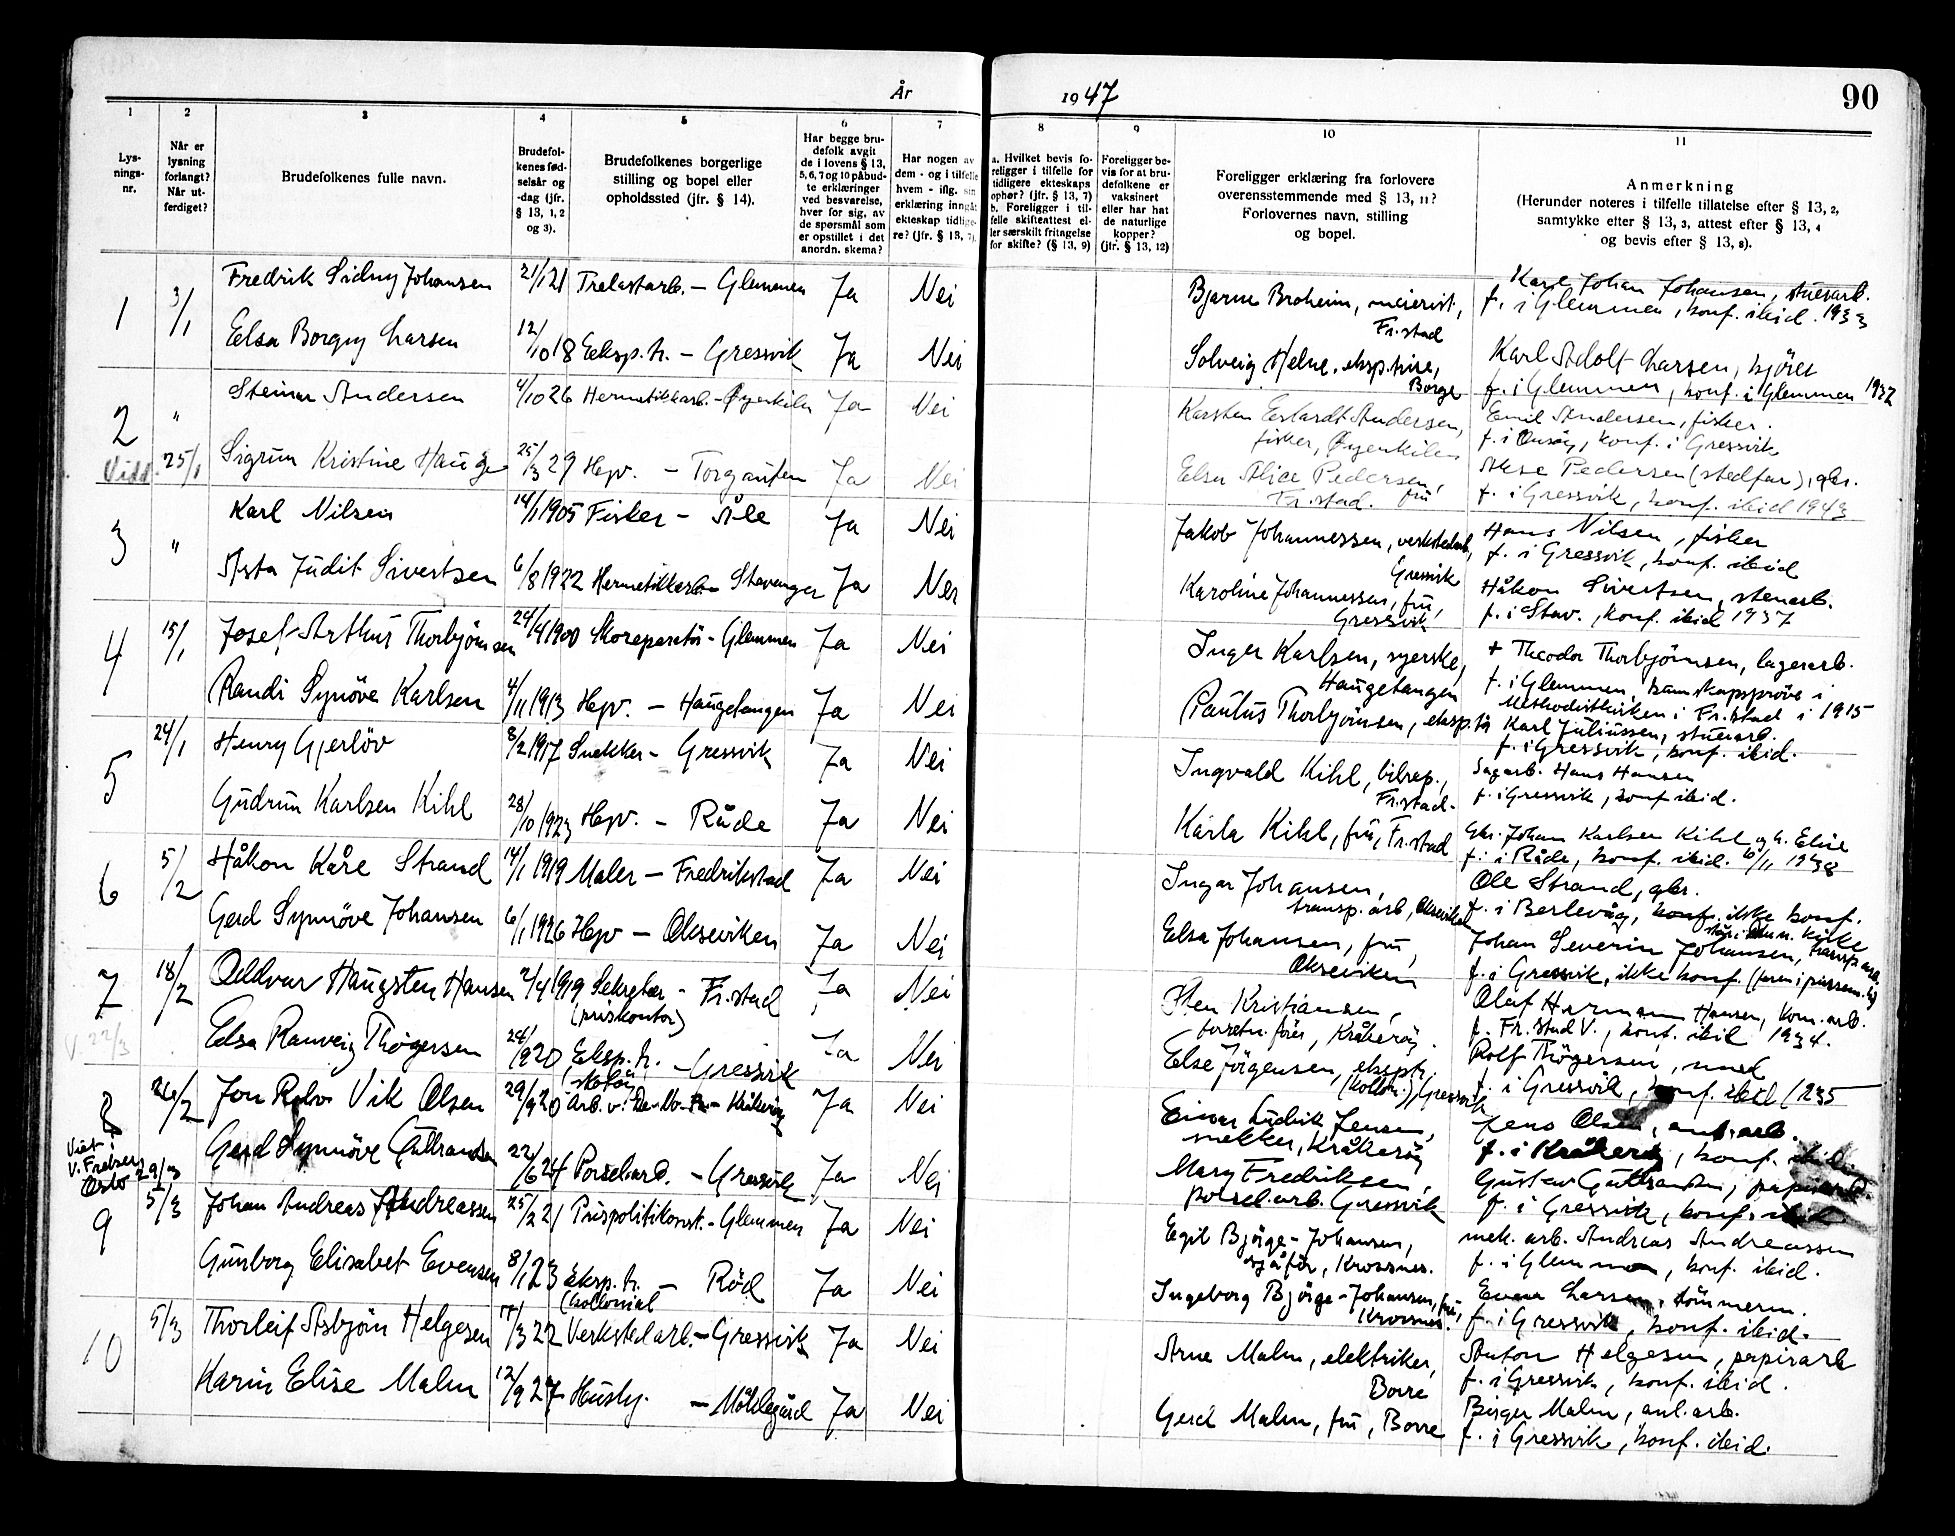 År 1947
90
1 2 3 4 5 6 7 8 9 10 11
Lys-
nings-
nr.
Når er
lysning
forlangt?
Når ut-
ferdiget?
Brudefolkenes fulle navn.
Brudefol-
kenes fød-
selsår og
-dag (jfr.
§ 13, 1, 2
og 3).
Brudefolkenes borgerlige
stilling og bopel eller
opholdssted (jfr. § 14).
Har begge bru-
defolk avgit
de i lovens § 13,
5, 6, 7 og 10 påbud-
te erklæringer
ved besvarelse,
hver for sig, av
de spørsmål som
er opstillet i det
anordn. skema?
Har nogen av
dem - og i tilfelle
hvem - iflg. sin
erklæring inngåt
ekteskap tidlige-
re? (jfr. § 13, 7).
a. Hvilket bevis fo-
religger i tilfelle for
tidligere ekteskaps
ophør? (jfr. § 13, 7)
b. Foreligger i til-
felle skifteattest el-
ler særskilt fritagelse
for skifte? (§ 13, 9)
Foreligger be-
vis for at bru-
defolkene er
vaksinert
eller har hat
de naturlige
kopper?
(jfr. § 13, 12)
Foreligger erklæring fra forlovere
overensstemmende med § 13, 11?
Forlovernes navn, stilling
og bopel.
Anmerkning
(Herunder noteres i tilfelle tillatelse efter § 13, 2,
samtykke efter § 13, 3, attest efter § 13, 4
og bevis efter § 13, 8).
1 3/1 Fredrik Sidny Johansen 21/1 21 Trelastarb. – Glemmen Ja Nei Bjarne Broheim, meierist, Fr.stad Karl Johan Johansen, stuearb.
f. i Glemmen, konf. ibid. 1933
Elsa Borgny Larsen 12/10 18 Eksp.tr. – Gressvik Ja Nei Solveig Helne, eksp.trise, Borge Karl Adolf Larsen, kjörer
f. i Glemmen, konf. i Glemmen 1932
2 " Steinar Andersen 4/10 26 Hermetikkarb. – Øyenkilen Ja Nei Karsten Andersen,
fisker, Øyenkilen
Emil Andersen, fisker.
f. i Onsøy, konf. i Gressvik
Vidd. 25/1 Sigrun Kristine Hauge 25/3 29 Hpv. – Torgauten Ja Nei Elsa Alice Pedersen,
Fr.stad. fru
Pedersen (stedfar), gbr.
f. i Gressvik, konf. ibid 1943
3 " Karl Nilsen 14/1 1905 Fisker – Åle Ja Nei Jakob Johannessen, verkstedarb,
Gressvik
Hans Nilsen, fisker
f. i Gressvik, konf. ibid
Asta Judit Sivertsen 6/8 1922 Hermetikkarb – Stavanger Ja Nei Karoline Johannessen, fru,
Gressvik
Håkon Sivertsen, stenarb.
f. i Stav., konf. ibid 1937
4 15/1 Josef Arthur Thorbjörnsen 24/4 1900 Skoreparatör – Glemmen Ja Nei Inger Karlsen, syerske,
Haugetangen
+ Theodor Thorbjörnsen, lagerarb.
f. i Glemmen, kunnskapsprøve i
Methodistkirken i Fr.stad i 1915
Randi Synöve Karlsen 4/11 1913 Hpv. – Haugetangen Ja Nei Paulus Thorbjörnsen, eksp.tr Karl Juliussen, stuearb.
f. i Gressvik, konf. ibid.
5 24/1 Henry Gjerlöv 8/2 1917 Snekker – Gressvik Ja Nei Ingvald Kihl, bilrep.,
Fr.stad.
Sagarb. Hans Hansen
f. i Gressvik, konf ibid.
Gudrun Karlsen Kihl 28/10 1923 Hpv. – Råde Ja Nei Karla Kihl, fru, Fr.stad Gbr. Johan Karlsen Kihl og h. Elise
f. i Råde, konf. ibid. 6/11 1938
6 5/2 Håkon Kåre Strand 14/1 1919 Maler – Fredrikstad Ja Nei Ingar Johansen,
transp.arb, Okseviken
Ole Strand, gbr.
f. i Berlevåg, ikke konf.
Gerd Synnöve Johansen 6/1 1926 Hpv – Okseviken Ja Nei Elsa Johansen, fru,
Okseviken
Johan Severin Johansen, transp.arb.
f. i Gressvik, ikke konf.
7 18/2 Oddvar Haugsten Hansen 2/4 1919 Sekretær – Fr.stad
(priskontor)
Ja Nei Kristiansen,
forretn.förer, Kråkeröy.
Olaf Herman Hansen, kom.arb.
f. Fr.stad V., konf. ibid 1934.
V. 22/3 Elsa Ranveig Thögersen 24/9 20 Eksp.tr. – Gressvik Ja Nei Else Jörgensen, eksptr.
(kolon.), Gressvik
Rolf Thögersen, murer
f. i Gressvik, konf. ibid 1935
8 26/2 Jon Vik Olsen 29/9 20 Arb. v. De-No-Fa – Kråkeröy Ja Nei Einar Ludvik Jensen,
snekker, Kråkeröy
Jens Olsen, anl.arb.
f. i Kråkeröy, konf. ibid
Viet i
V. Frelsers
Oslo 29/3
Gerd Synnöve Guttransen 22/6 24 Porselarb. – Gressvik Ja Nei Mary Fredriksen,
porsel.arb. Gressvik
Gustav Guttransen, papirarb.
f. i Gressvik, konf. ibid
9 5/3 Johan Andreas Andreassen 25/2 21 Prispolitikonst. – Glemmen Ja Nei Egil Björge-Johansen,
sjåför, Krossnes.
mek. arb. Andreas Andreassen
f. i Glemmen, konf. ibid.
Gunborg Elisabet Evensen 8/1 23 Eksp.tr. – Rød
(kollonial
Ja Nei Ingeborg Bjørge-Johansen, fru,
Krossnes.
Larsen, tömmerm.
f. i Gressvik, konf. ibid.
10 5/3 Thorleif Asbjørn Helgesen 17/3 22 Verkstedarb. – Gressvik Ja Nei Arne Malm, elektriker,
Borre
Anton Helgesen, papirarb
f. i Gressvik, konf. ibid.
Karin Elise Malm 12/9 27 Husby. – Möklegård Ja Nei Gerd Malm, fru, Borre Birger Malm, anl.arb.
f. i Gressvik, konf. ibid.